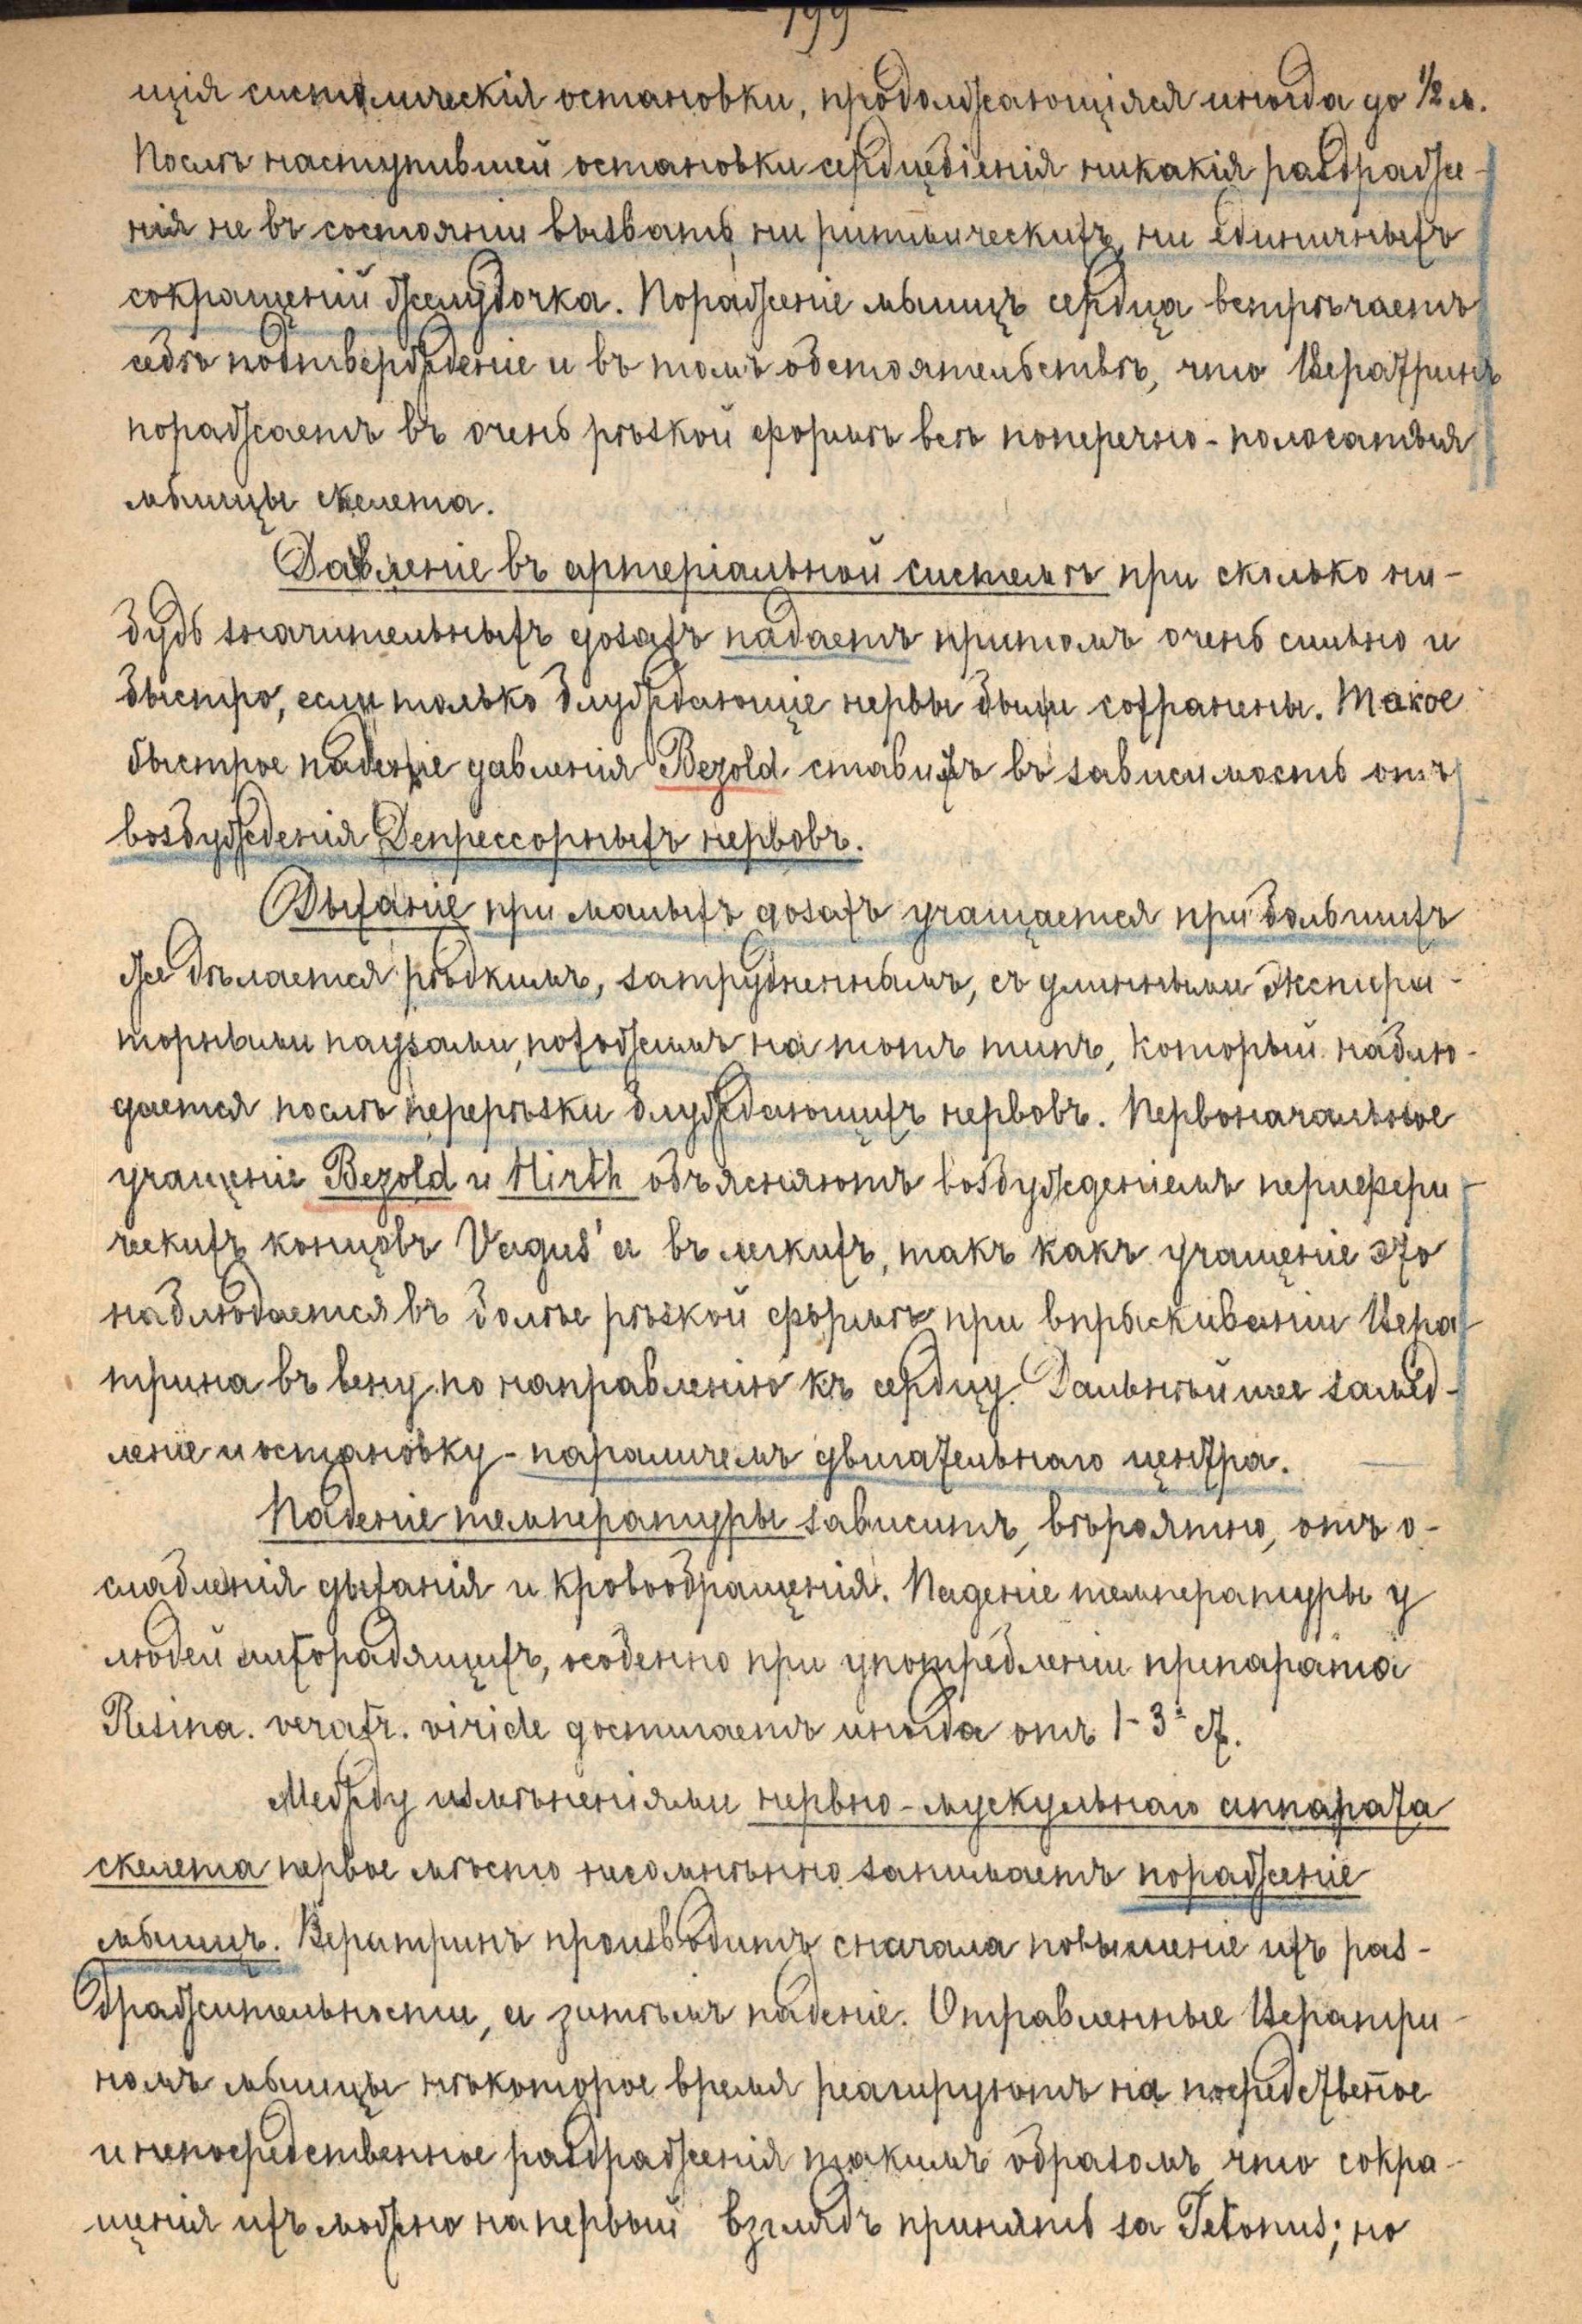 — 199 —
щія систолическія остановки, продолжающіяся иногда до 1/2 м.
Послѣ наступившей остановки сердцебіенія никакія раздраже-
нія не въ состояніи вызвать, ни ритмическихъ, ни единичныхъ
сокращеній желудочка. Пораженіе мышцъ сердца встрѣчаетъ
себѣ подтвержденіе и въ томъ обстоятельствѣ, что Вератринъ
поражаетъ въ очень рѣзкой формѣ всѣ поперечно-полосатыя
мышцы скелета.
Давленіе въ артеріальной системѣ при сколько ни-
будь значительныхъ дозахъ падаетъ притомъ очень сильно и
быстро, если только блуждающіе нервы были сохранены. Такое
быстрое паденіе давленія Bezold ставитъ въ зависимость отъ
возбужденія Депрессорныхъ нервовъ.
Дыханіе при малыхъ дозахъ учащается при большихъ
же дѣлается рѣдкимъ, затрудненнымъ, съ длинными экспира-
торными паузами, похожимъ на тотъ типъ, который наблю-
дается послѣ перерѣзки блуждающихъ нервовъ. Первоначальное
учащеніе Bezold и Hirth объясняютъ возбужденіемъ перифери-
ческихъ концовъ Vagus'а въ легкихъ, такъ какъ учащеніе это
наблюдается въ болѣе рѣзкой формѣ при впрыскиваніи Вера-
трина въ вену по направленію къ сердцу. Дальнѣйшее замед-
леніе и остановку - параличемъ двигательнаго центра.
Паденіе температуры зависитъ, вѣроятно, отъ о-
слабленія дыханія и кровообращенія. Паденіе температуры у
людей лихорадящихъ, особенно при употребленіи препарата
Resina. veratr. viride достигаетъ иногда отъ 1-3° Ц.
Между измѣненіями нервно-мускульнаго аппарата
скелета первое мѣсто несомнѣнно занимаетъ пораженіе
мышцъ. Вератринъ производитъ сначала повышеніе ихъ раз-
дражительности, а затѣмъ паденіе. Отравленные Вератри-
номъ мышцы нѣкоторое время реагируютъ на посредственное
и непосредственное раздраженія такимъ образомъ, что сокра-
щенія ихъ можно на первый взглядъ принять за Tetonus; но